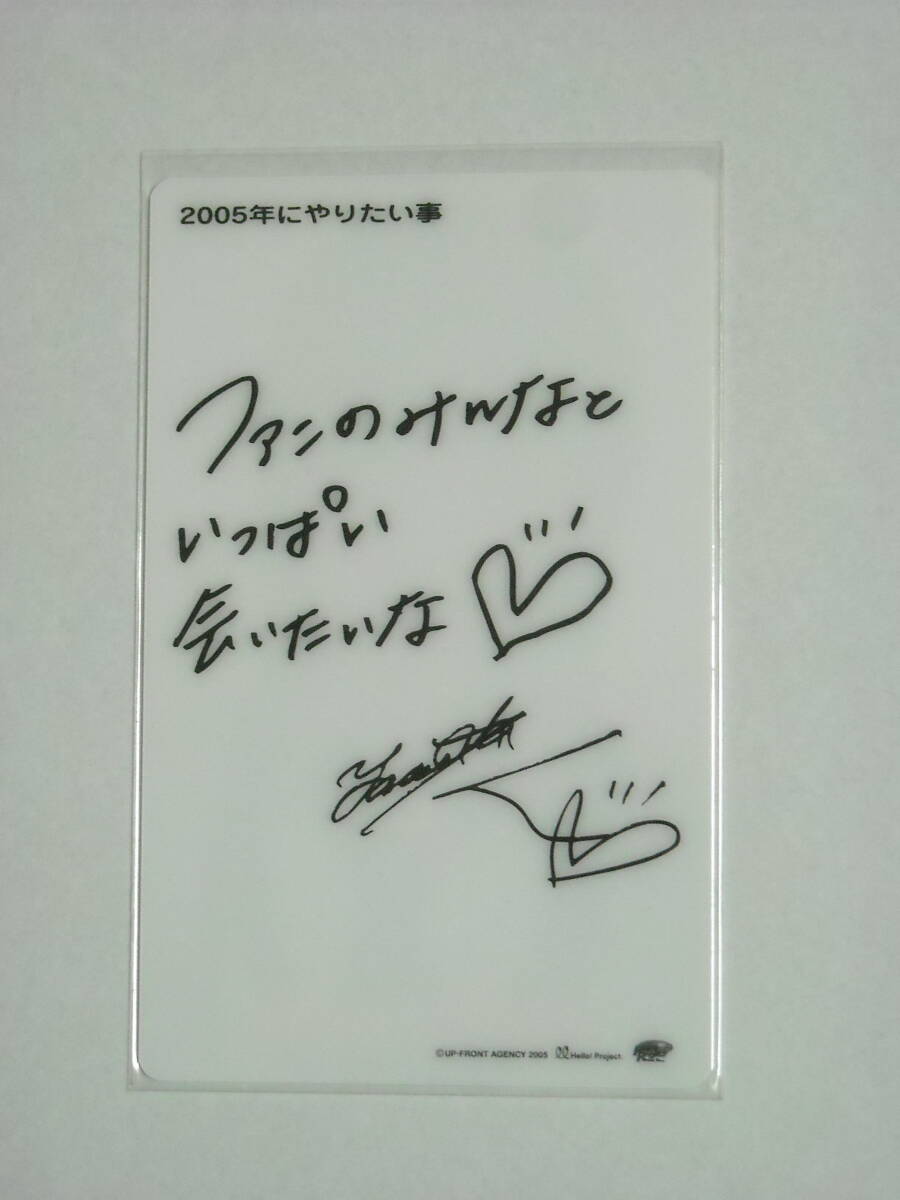 2005年にやりたい事
ファンのみんなと
いっぱい
会いたいな
©UP-FRONT AGENCY 2005 Hello! Project